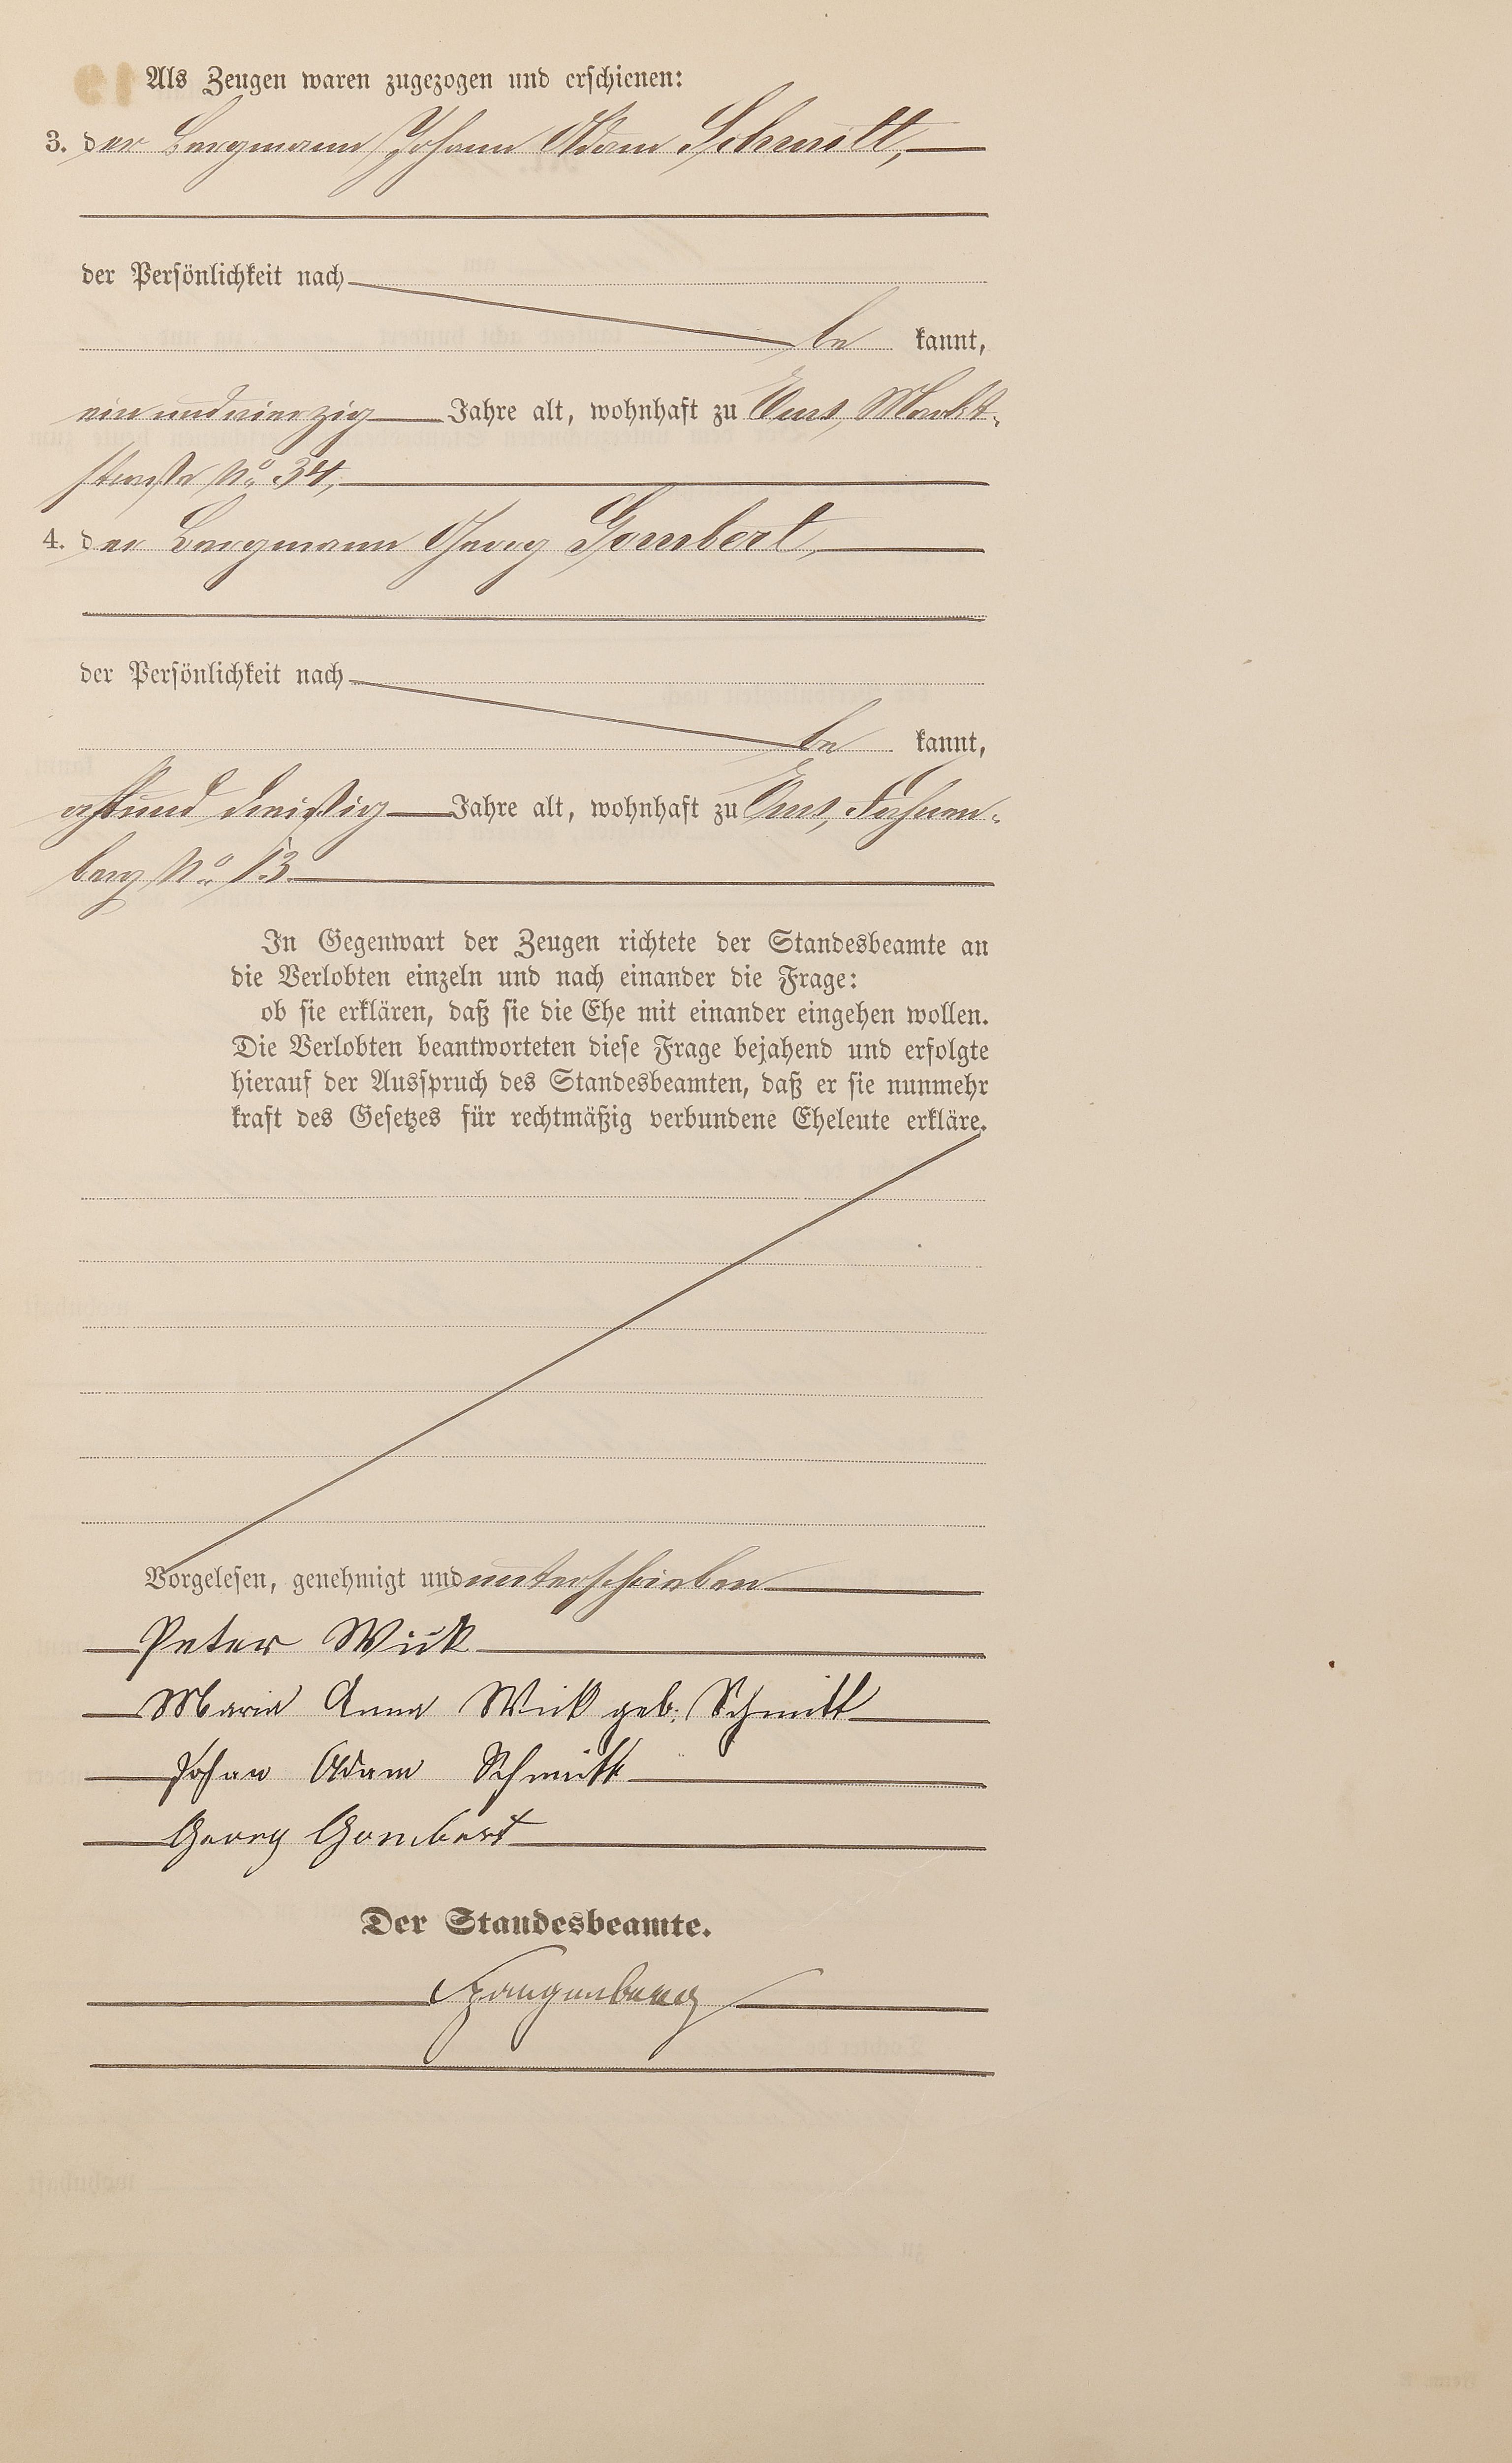 Als Zeugen waren zugezogen und erschienen:
3. der Bergmann Johann Adam Schmitt,
der Persönlichkeit nach
be kannt,
ein und vierzig Jahre alt, wohnhaft zu Ems, Markt-
straße No. 34,
4. der Bergmann Georg Gombert,
der Persönlichkeit nach
be kannt,
acht und dreißig Jahre alt, wohnhaft zu Ems, Fahnen-
berg No. 13
In Gegenwart der Zeugen richtete der Standesbeamte an
die Verlobten einzeln und nach einander die Frage:
ob sie erklären, daß sie die Ehe mit einander eingehen wollen.
Die Verlobten beantworteten diese Frage bejahend und erfolgte
hierauf der Ausspruch des Standesbeamten, daß er sie nunmehr
kraft des Gesetzes für rechtmäßig verbundene Eheleute erkläre.
Vorgelesen, genehmigt und unterschrieben
Peter Wick
Maria Anna Wick geb. Schmitt
Johan Adam Schmitt
Georg Gombert
Der Standesbeamte.
Spangenberg